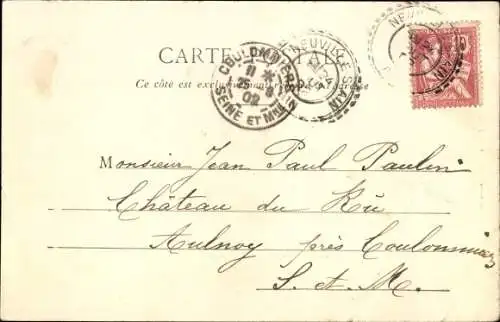 CARTE POSTALE
Ce côté est exclusivement réservé à l'adresse
COULOMMIERS
11 *
25 - 8
02
SEINE ET MNE
NEUVILLE S AIN
Monsieur Jean Paul Paulin
Château du Rû
Aulnoy près Coulommiers
S. et M.